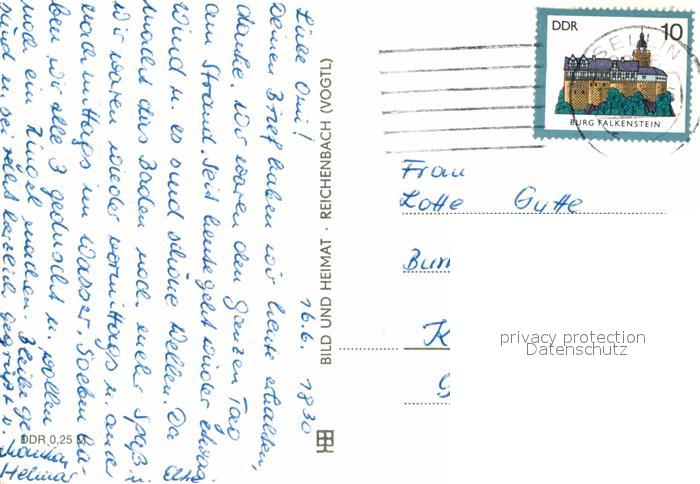 16.6. 1830
Liebe Omi!
Deinen Brief haben wir heute erhalten,
danke. Wir waren den ganzen Tag
am Strand. Seit heute geht wieder etwas
Wind u. es sind schöne Wellen. Da
macht das Baden noch mehr Spaß.
Wir waren wieder vormittags u. auch
nachmittags im Wasser. Soeben ha-
ben wir alle 3 geduscht u. wollen
noch ein Bummel machen. Bleibe ge-
sund u. sei recht herzlich gegrüßt v.
Elke
Helmar
DDR 0,25 M
BILD UND HEIMAT · REICHENBACH (VOGTL)
DDR 10
BURG FALKENSTEIN
SELLIN
Frau
Lotte Gytte
Bum
K
privacy protection
Datenschutz